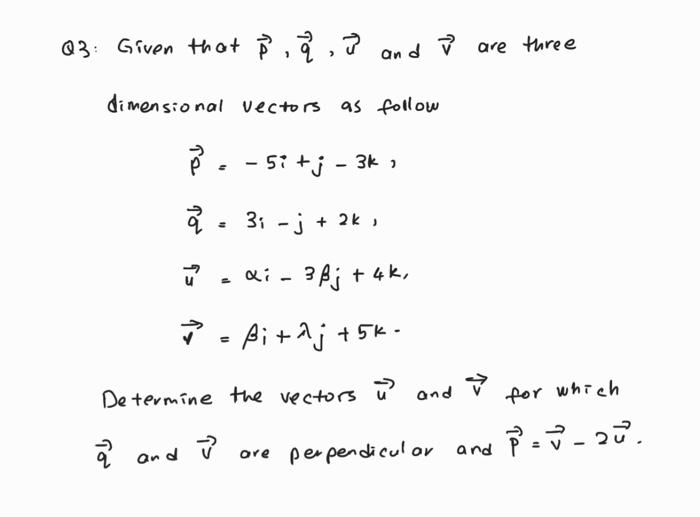 Q3: Given that p⃗ , q⃗ , u⃗ and v⃗ are three
dimensional vectors as follow
p⃗ = - 5i + j - 3k ,
q⃗ = 3i - j + 2k ,
u⃗ = αi - 3βj + 4k,
v⃗ = βi + λj + 5k .
Determine the vectors u⃗ and v⃗ for which
q⃗ and v⃗ are perpendicular and p⃗ = v⃗ - 2u⃗ .